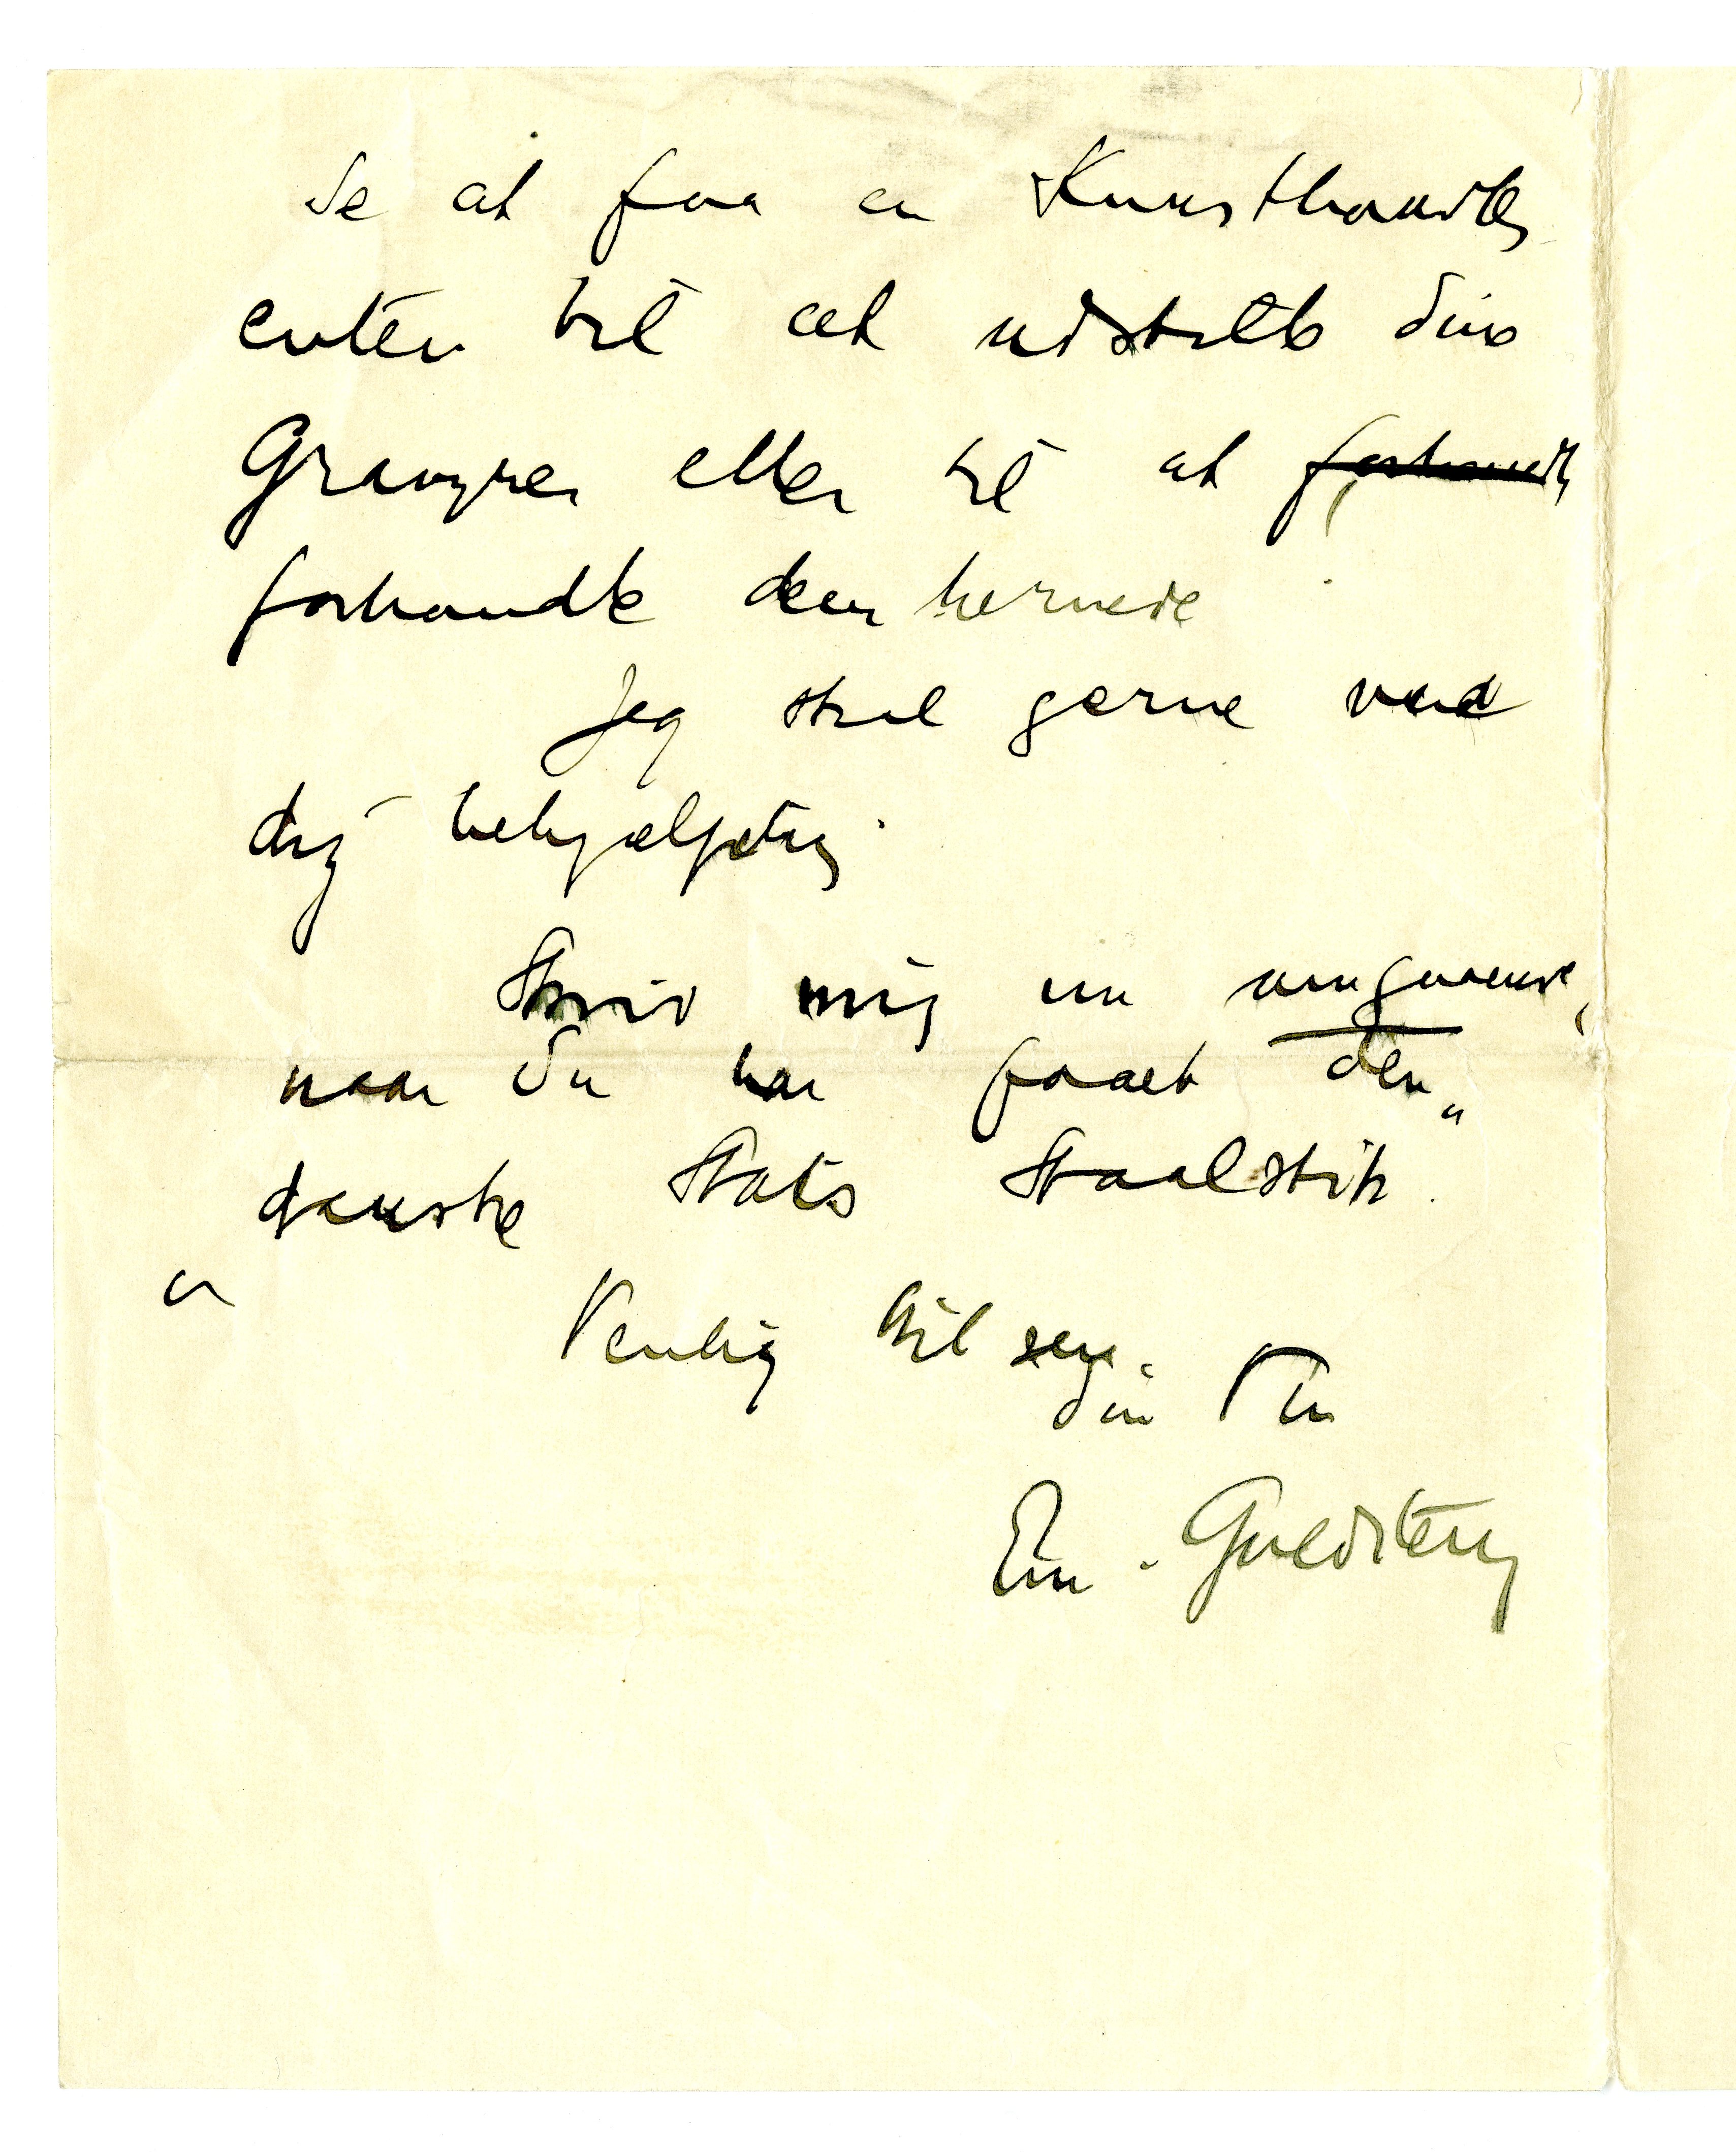 Se at faa en Kunsthandler
enten til at udstille dine
Gravyrer eller til at forhandle
forhandle dem hernede
Jeg skal gerne være
dig behjælpelig.
Skriv mig nu umgaaende,
naar du har faaet den „
danske Stats Staalstik.
"
Venlig Hilsen.
din Ven
Em. Guldstein